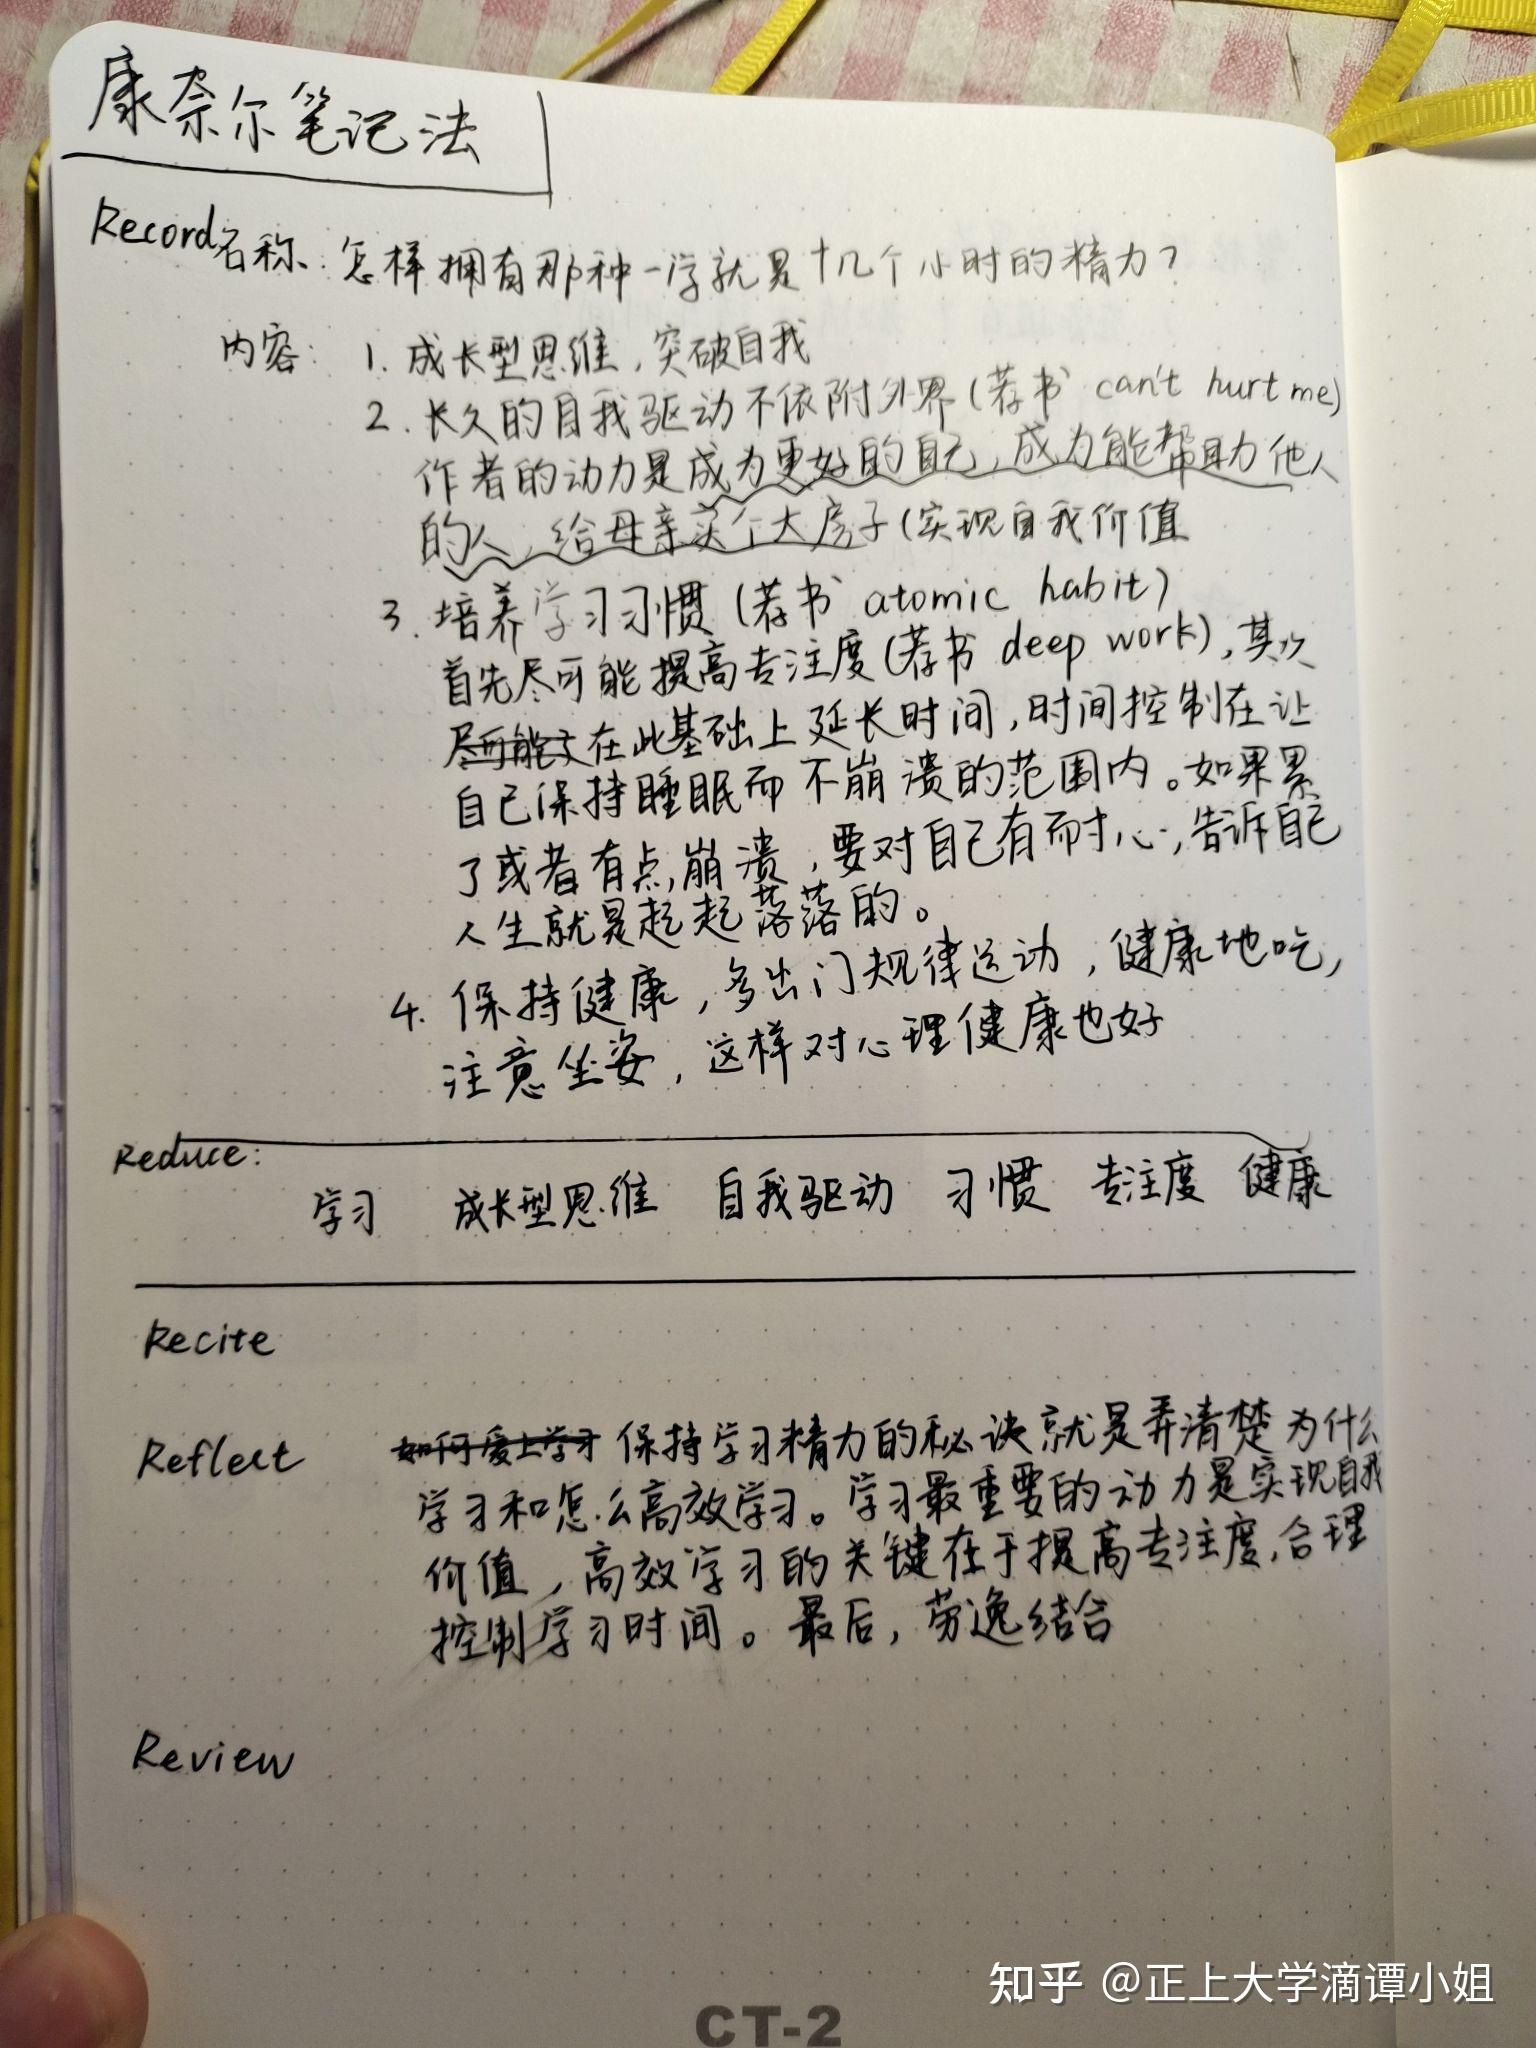 康奈尔笔记法
Record 名称：怎样拥有那种一学就是十几个小时的精力？
内容：1. 成长型思维，突破自我
2. 长久的自我驱动不依附外界（荐书 can't hurt me）
作者的动力是成为更好的自己，成为能帮助他人
的人，给母亲买个大房子（实现自我价值
3. 培养学习习惯（荐书 atomic habit）
首先尽可能提高专注度（荐书 deep work），其次
尽可能 在此基础上延长时间，时间控制在让
自己保持睡眠而不崩溃的范围内。如果累
了或者有点崩溃，要对自己有耐心，告诉自己
人生就是起起落落的。
4. 保持健康，多出门规律运动，健康地吃，
注意坐姿，这样对心理健康也好
Reduce：
学习 成长型思维 自我驱动 习惯 专注度 健康
Recite
Reflect 如何爱上学习 保持学习精力的秘诀就是弄清楚为什么
学习和怎么高效学习。学习最重要的动力是实现自我
价值，高效学习的关键在于提高专注度，合理
控制学习时间。最后，劳逸结合
Review
知乎 @正上大学滴谭小姐
CT-2